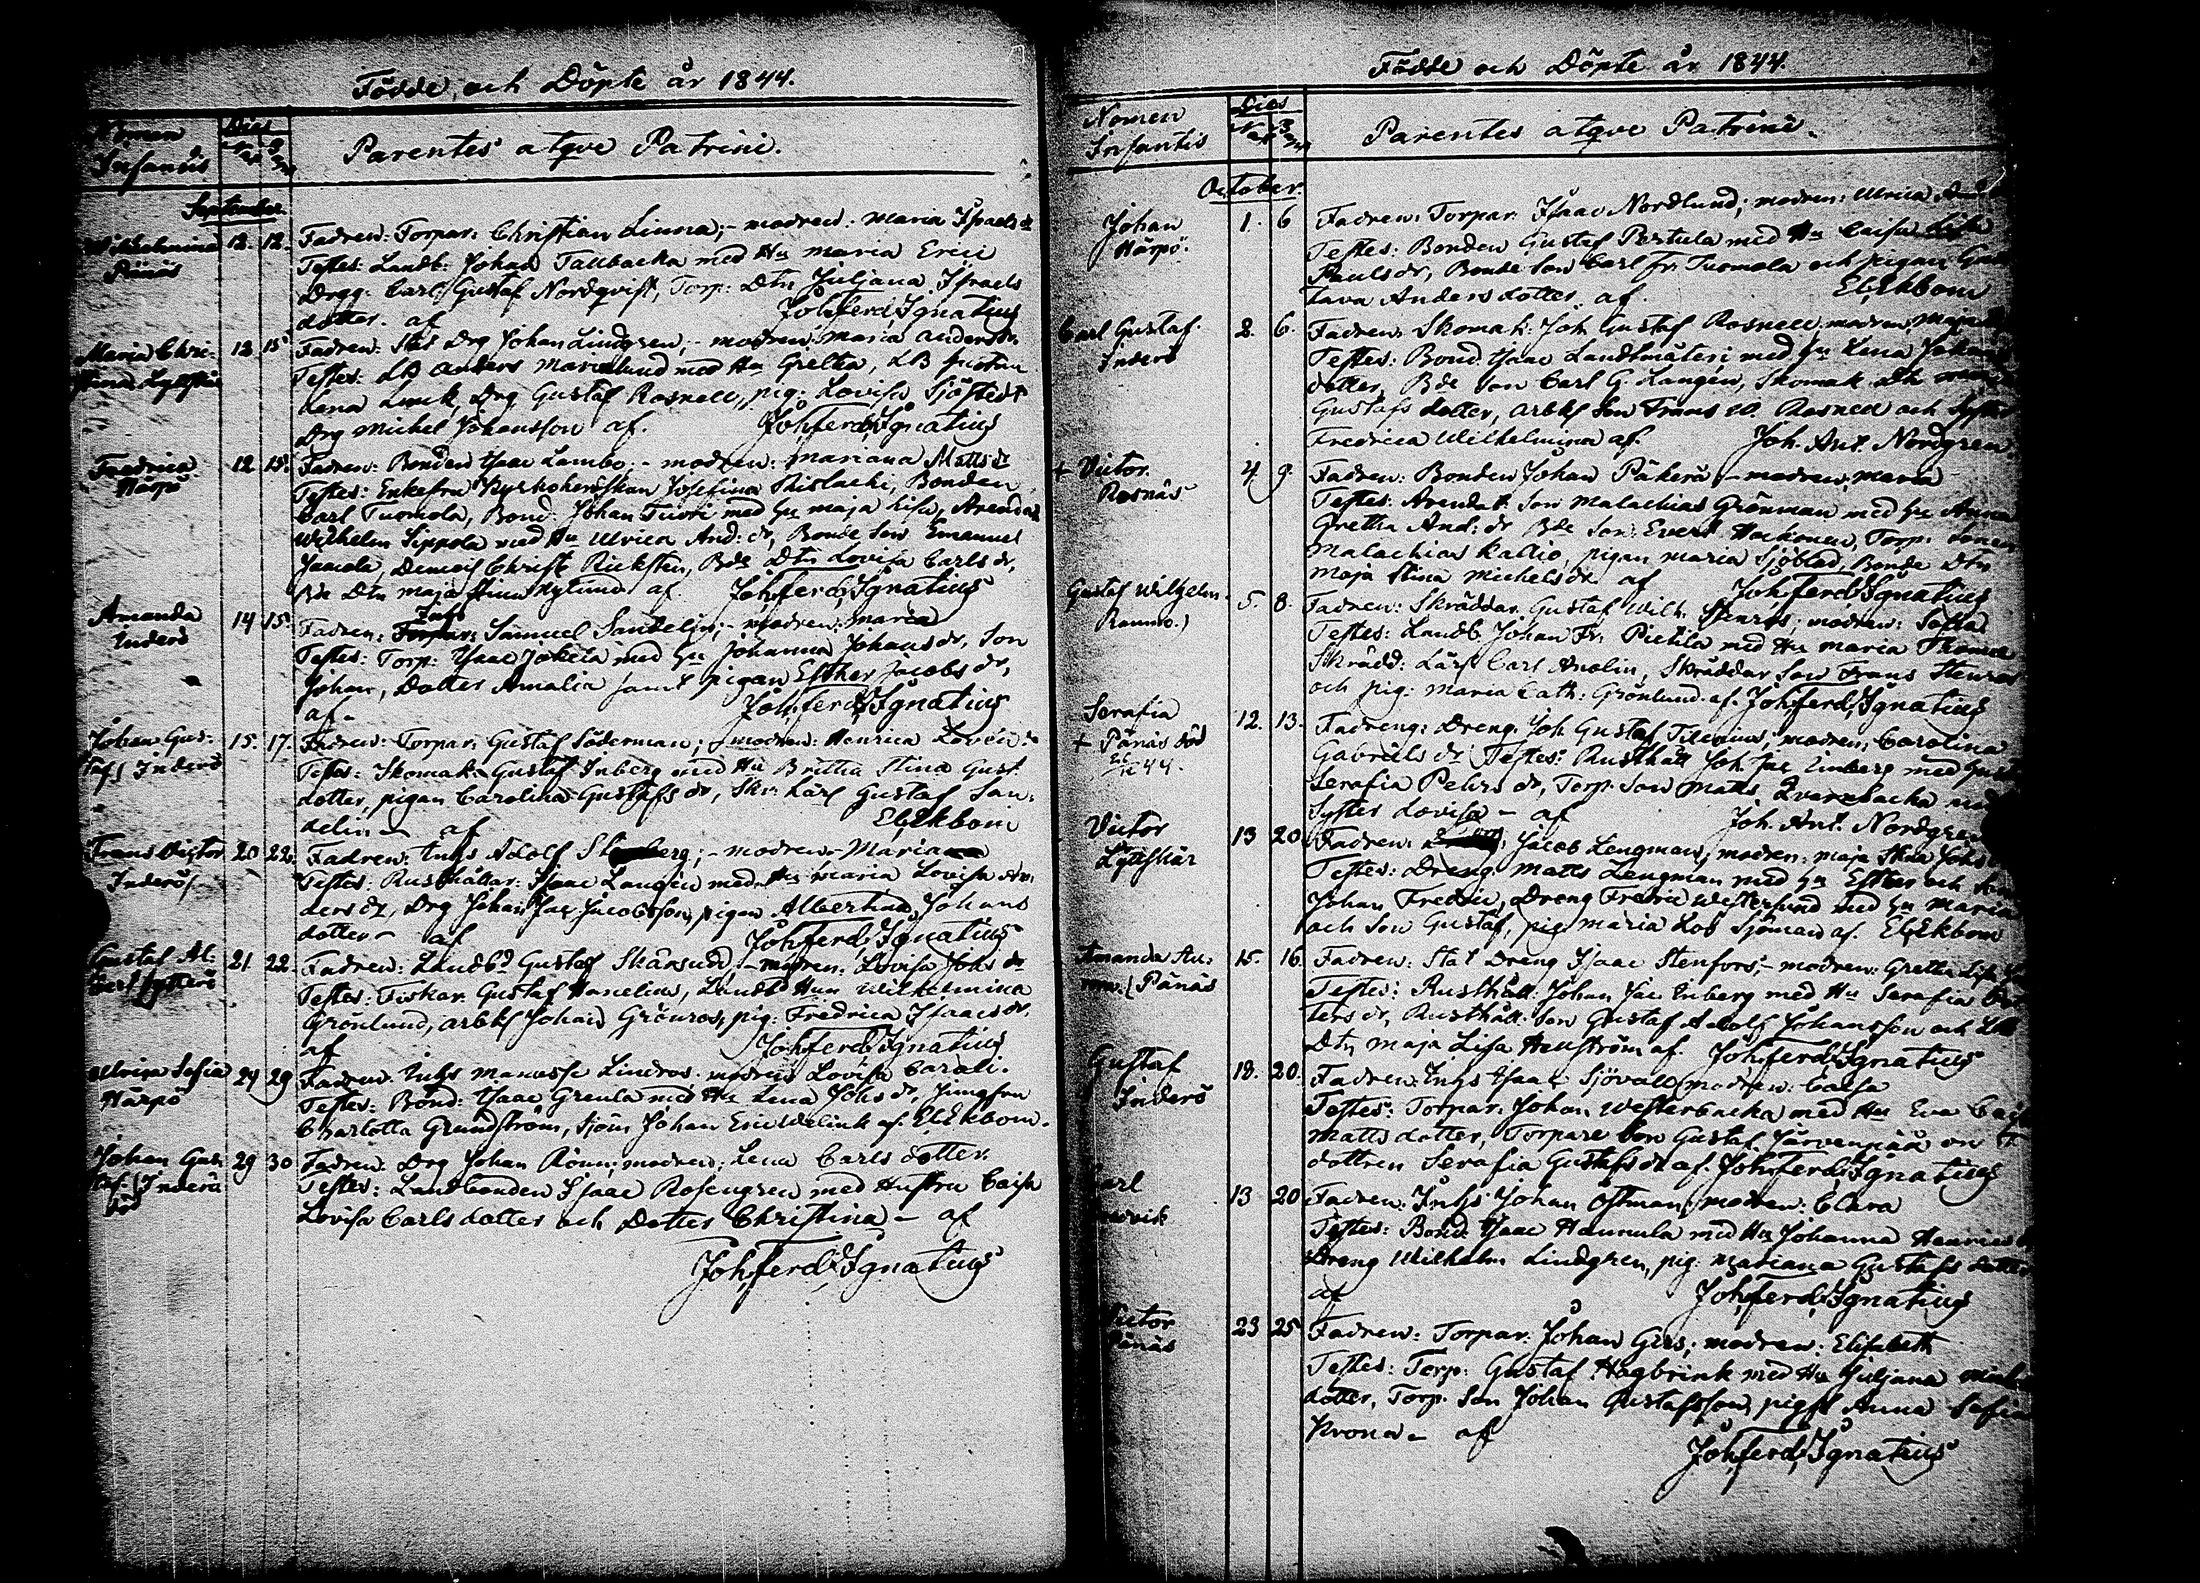 Födde och Döpte år 1844.
Nomen Infantis
Dies Nat. B:m
Parentes atqve Patrini.
September.
Wilhelmina 12. 12. Fadren: Torpar: Christian Linna; - modren: Maria Isaacs dr
Pänäs Testes: Landb: Johan Tallbacka med Hu Maria Erici
Drgg: Carl Gustaf Nordqvist, Torp: Dtr Juljana Israels
dotter. af Joh ferd Ignatius
Maria Chri- 12 15 Fadren: Drg Johan Lindgren; - modren Maria Anders dr
stina Testes: LB Anders Marielund med Hu Gretha, LB
Lena Drg Gustaf Rosnell, pig: Lovisa Sjöstedt
Drg Michel Johansson af. Joh ferd Ignatius
Fredrica 12 15. Fadren: Bonden Isaac Lambo; - modren: Mariana Matts dr
Härpö Testes: Enkefru Kyrkoherdskan Josefina Bonden
Carl Tuomola, Bond: Johan Tuori med Hu Maja Lisa, Arendat
Wilhelm Sippola med Hu Ulrica And: dr, Bonde Son Emanuel
Jaacola, Christ: Ricksten, Bde Dtr Lovisa Carls dr,
Bde Dtr Maja Stina Nylund af. Joh ferd Ignatius
Amanda 14 15. Fadren: Inhs Samuel Sandelin; - modren: Maria
Inderö Testes: Torp: Isaac Jokela med Hu Johanna Johans dr, Son
Johan, Dotter Amalia samt pigan Esther Jacobs dr,
af Joh ferd Ignatius
Johan Gus- 15. 17. Fadren: Torpar: Gustaf Söderman; modren: Henrica Lovén:
taf Inderö Testes: Skomak: Gustaf Inberg med Hu Britha Stina Gust:
dotter, pigan Carolina Gustafs dr, Skr: Lärl Gustaf San-
delin - af El: Ekbom
Frans Victor 20 22. Fadren: Inhs Adolf - modren - Maria
Inderö Testes: Rusthållar: Isaac Langén med Hu Maria Lovisa An-
ders dr, Drg Johan Jac Jacobsson, pigan Albertina Johans
dotter - af Joh ferd Ignatius
Gustaf Al- 21 22 Fadren: Landbd Gustaf Skärsudd; - modren: Lovisa Johs dr
Testes: Fiskar: Gustaf Hamelius, Landb Hun Wilhelmina
Grönlund, arbkl Johan Grönros, pig: Fredrica Isaacs dr,
af Joh ferd Ignatius
Ulrica Sofia 24 29 Fadren: Inhs Manasse Lindros. modren Lovisa Carali.
Härpö Testes: Bond: Isaac Greula med Hu Lena Johs dr, Jungfru
Charlotta Grundström, Sjöm Johan Eric Welink af. El Ekbom.
Johan Gus- 29 30 Fadren: Drg Johan Rönn; modren: Lena Carls dotter
taf. Inderö Testes: Landbonden Isaac Rosengren med Hustru Caisa
död Lovisa Carls dotter och Dotter Christina - af
Joh ferd Ignatius
Födde och Döpte år 1844.
Nomen Infantis
Dies Nat B:m
Parentes atqve Patrini.
October.
Johan 1. 6 Fadren: Torpar: Isaac Nordlund; modren: Ulrica
Härpö. Testes: Bonden Gustaf Pertula med Hu Caisa
Pauls dr, Bonde Son Carl Fr: Tuomola och pigan
tava Anders dotter. af. El: Ekbom
Carl Gustaf. 2. 6. Fadren: Skomak: Joh Gustaf Rosnell modren: Maja
Inderö Testes: Bond. Isaac Landtmäteri med Hu Lena Johans
dotter, Bde Son Carl G: Langén, Skomak: Dtr
Gustafs dotter, arbkl Son Frans W. Rosnell och Syster
Fredrica Wilhelmina af. Joh. Ant. Nordgren.
+ Victor 4. 9. Fadren: Bonden Johan Päkerä - modren: Maria -
Rosnäs Testes: Arendat. Son Malachias Grönman med Hu Anna
Gretha And: dr Bde Son: Evert Hockonen, Torp: Sonen
Malachias Kallio, pigan Maria Sjöblad, Bonde Dtr
Maja Stina Michels dr af Joh ferd Ignatius
Gustaf Wilhelm. 5. 8. Fadren: Skräddar. Gustaf Wilh. Stenros; modren: Sofia
Raumo.) Testes: Landb. Johan Fr: Pietilä med Hu Maria Thomæ
Skrädd: Lärl Carl Anolin, Skräddar Son Frans Stenros
och pig: Maria Cath: Grönlund. af. Joh ferd Ignatius
Serafia 12. 13. Fadreng: Dreng. Joh Gustaf modren: Carolina
+ Pänäs död Gabriels dr Testes: Rusthåll Joh Jac Enberg med Hu
44. Serafia Pehrs dr, Torp: Son Matts Qvarnbacka med
Syster Lovisa - af Joh. Ant. Nordgren
Victor 13 20 Fadren: Jacob Lengman; modren: Maja Stina Johs
Lyttskär Testes: Dreng. Matts Lengman med Hu Esther och Son
Johan Fredric, Dreng Fredric Westerlund med Hu Maria
och Son Gustaf, pig: Maria Lov Sjöman af. El: Ekbom
Amanda Au- 15. 16. Fadren: Stat Dreng Isaac Stenfors; - modren: Gretha Lisa
Pänäs Testes: Rusthåll: Johan Jac Enberg med Hu Serafia Pe-
ters dr, Rusthåll: Son Gustaf Adolf Johansson och
Dtr Maja Lisa Hellström af. Joh ferd Ignatius
Gustaf 18. 20. Fadren: Inhs Isaac Sjövall modren: Caisa
Inderö Testes: Torpar: Johan Westerbacka med Hu Eva Caisa
Matts dotter, Torpare Son Gustaf Järvenpää
dottren Serafia Gustafs dr af. Joh ferd Ignatius
Carl 13 20 Fadren: Inhs Johan Ostman; modren: Clara
Testes: Bond: Isaac Hannula med Hu Johanna Henrics
Dreng Wilhelm Lindgren, pig: Mariana Gustafs dotter
af Joh ferd Ignatius
Victor 23 25 Fadren: Torpar: Johan Gers; modren: Elisabeth
Pänäs Testes: Torp: Gustaf Hagbrink med Hu Juljana
dotter, Torp. Son Johan Gustafsson, Anna Sofia
Krona - af
Joh ferd Ignatius